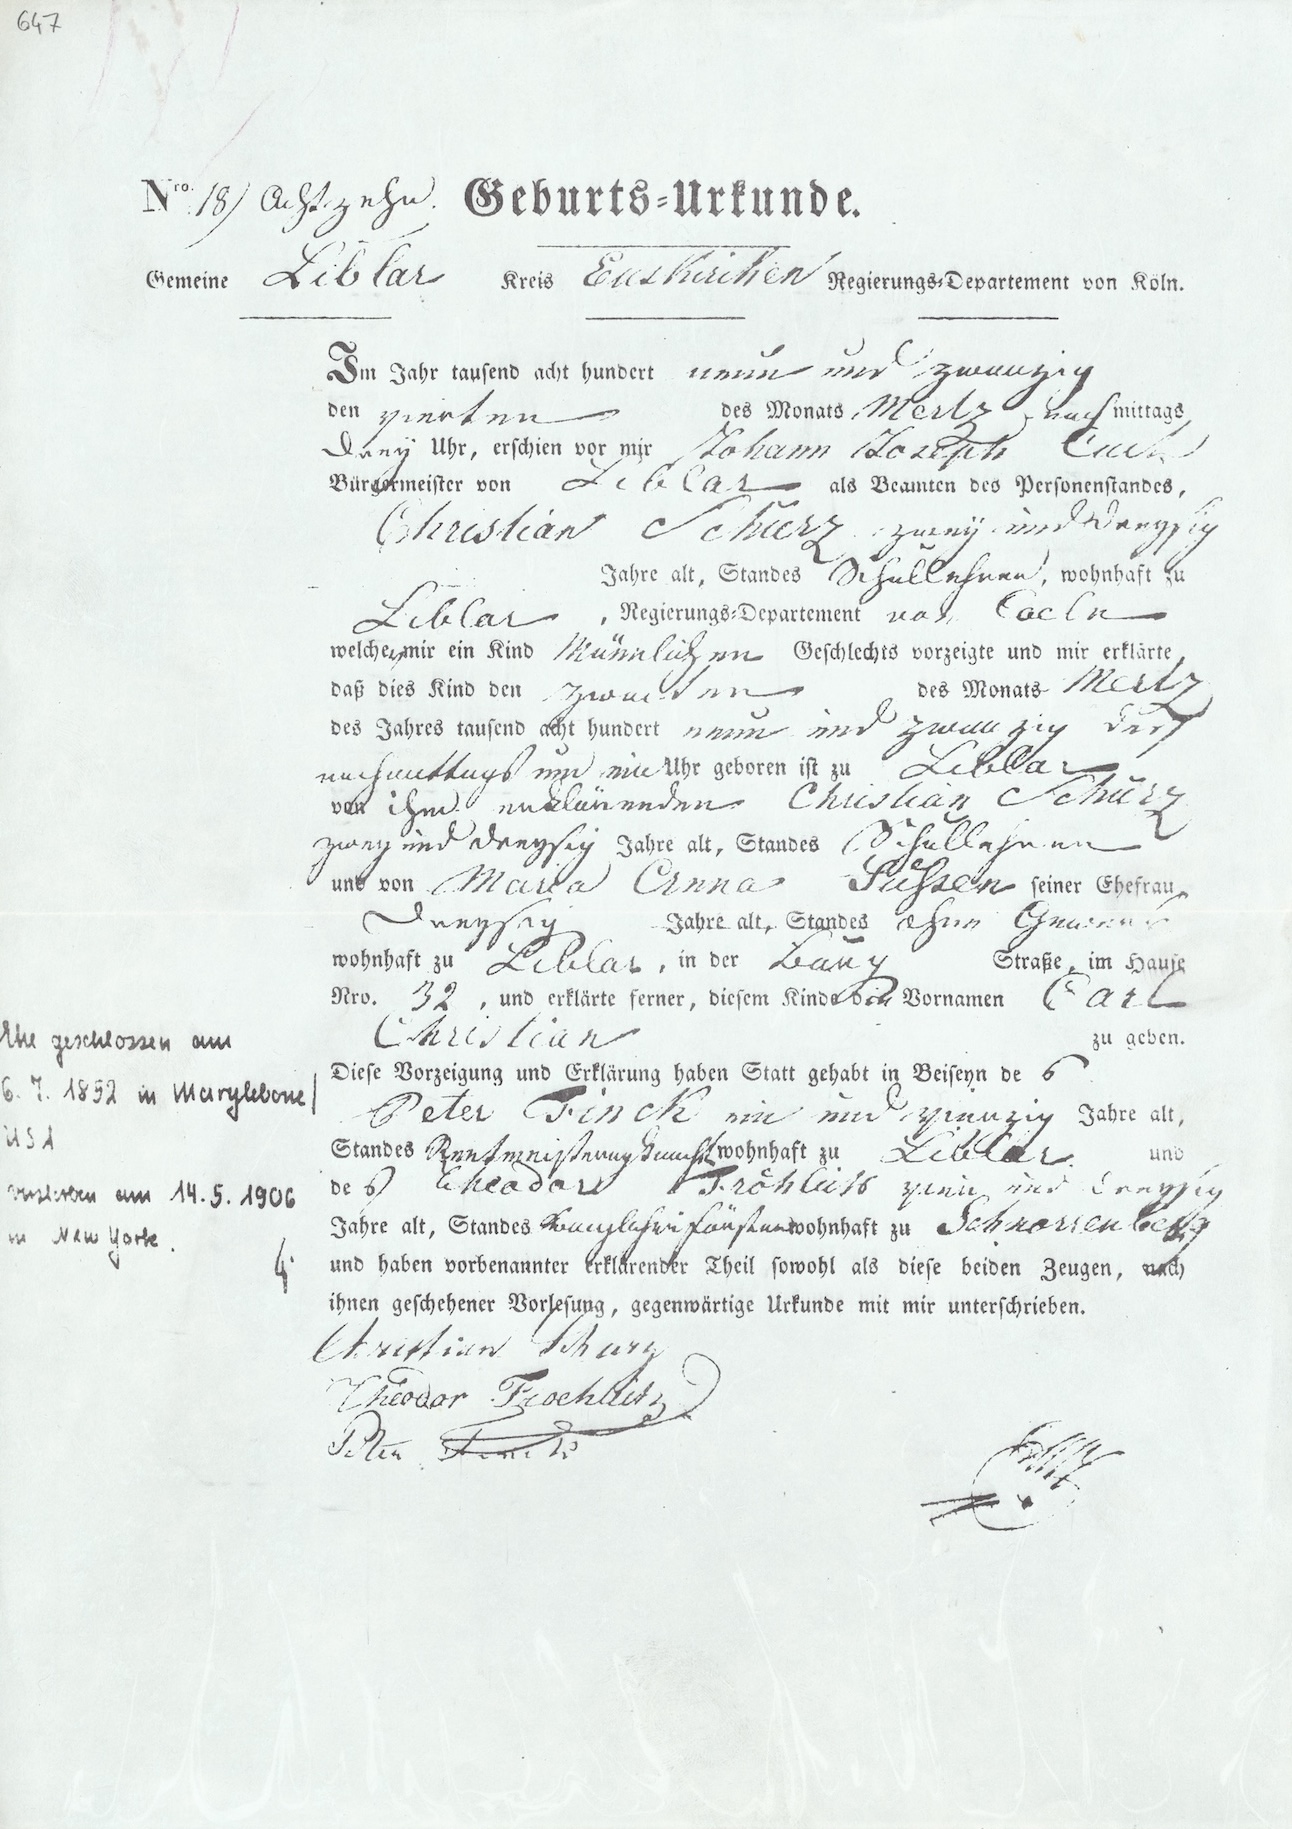 647
Nro. 18) Achtzehn. Geburts=Urkunde.
Gemeine Liblar Kreis Euskirchen Regierungs=Departement von Köln.
Im Jahr tausend acht hundert neun und zwanzig
den vierten des Monats Mertz nach mittags
drey Uhr, erschien vor mir Johann Joseph
Bürgermeister von Liblar als Beamten des Personenstandes,
Christian Schurz zwey und dreyssig
Jahre alt, Standes Schullehrer, wohnhaft zu
Liblar, Regierungs=Departement von Coeln
welcher mir ein Kind Männlichen Geschlechts vorzeigte und mir erklärte,
daß dies Kind den zweiten des Monats Mertz
des Jahres tausend acht hundert neun und zwanzig des
nachmittags um ein Uhr geboren ist zu Liblar
von ihm erklärenden Christian Schurz
zwey und dreyssig Jahre alt, Standes Schullehrer
und von Maria Anna Jüssen seiner Ehefrau,
dreyssig Jahre alt, Standes ohne Gewerb
wohnhaft zu Liblar, in der Burg Straße, im Hause
Nro. 32, und erklärte ferner, diesem Kinde die Vornamen Carl
Christian zu geben.
Diese Vorzeigung und Erklärung haben Statt gehabt in Beiseyn des
Peter Finck ein und vierzig Jahre alt,
Standes wohnhaft zu Liblar und
des Theodor Fröhlich und dreyssig
Jahre alt, Standes wohnhaft zu Schnorrenberg
und haben vorbenannter erklärender Theil sowohl als diese beiden Zeugen, nach
ihnen geschehener Vorlesung, gegenwärtige Urkunde mit mir unterschrieben.
Christian Schurz
Theodor
Peter Finck
Ehe geschlossen am
6. 7. 1852 in Marylebone/
USA
verstorben am 14.5.1906
in New York.